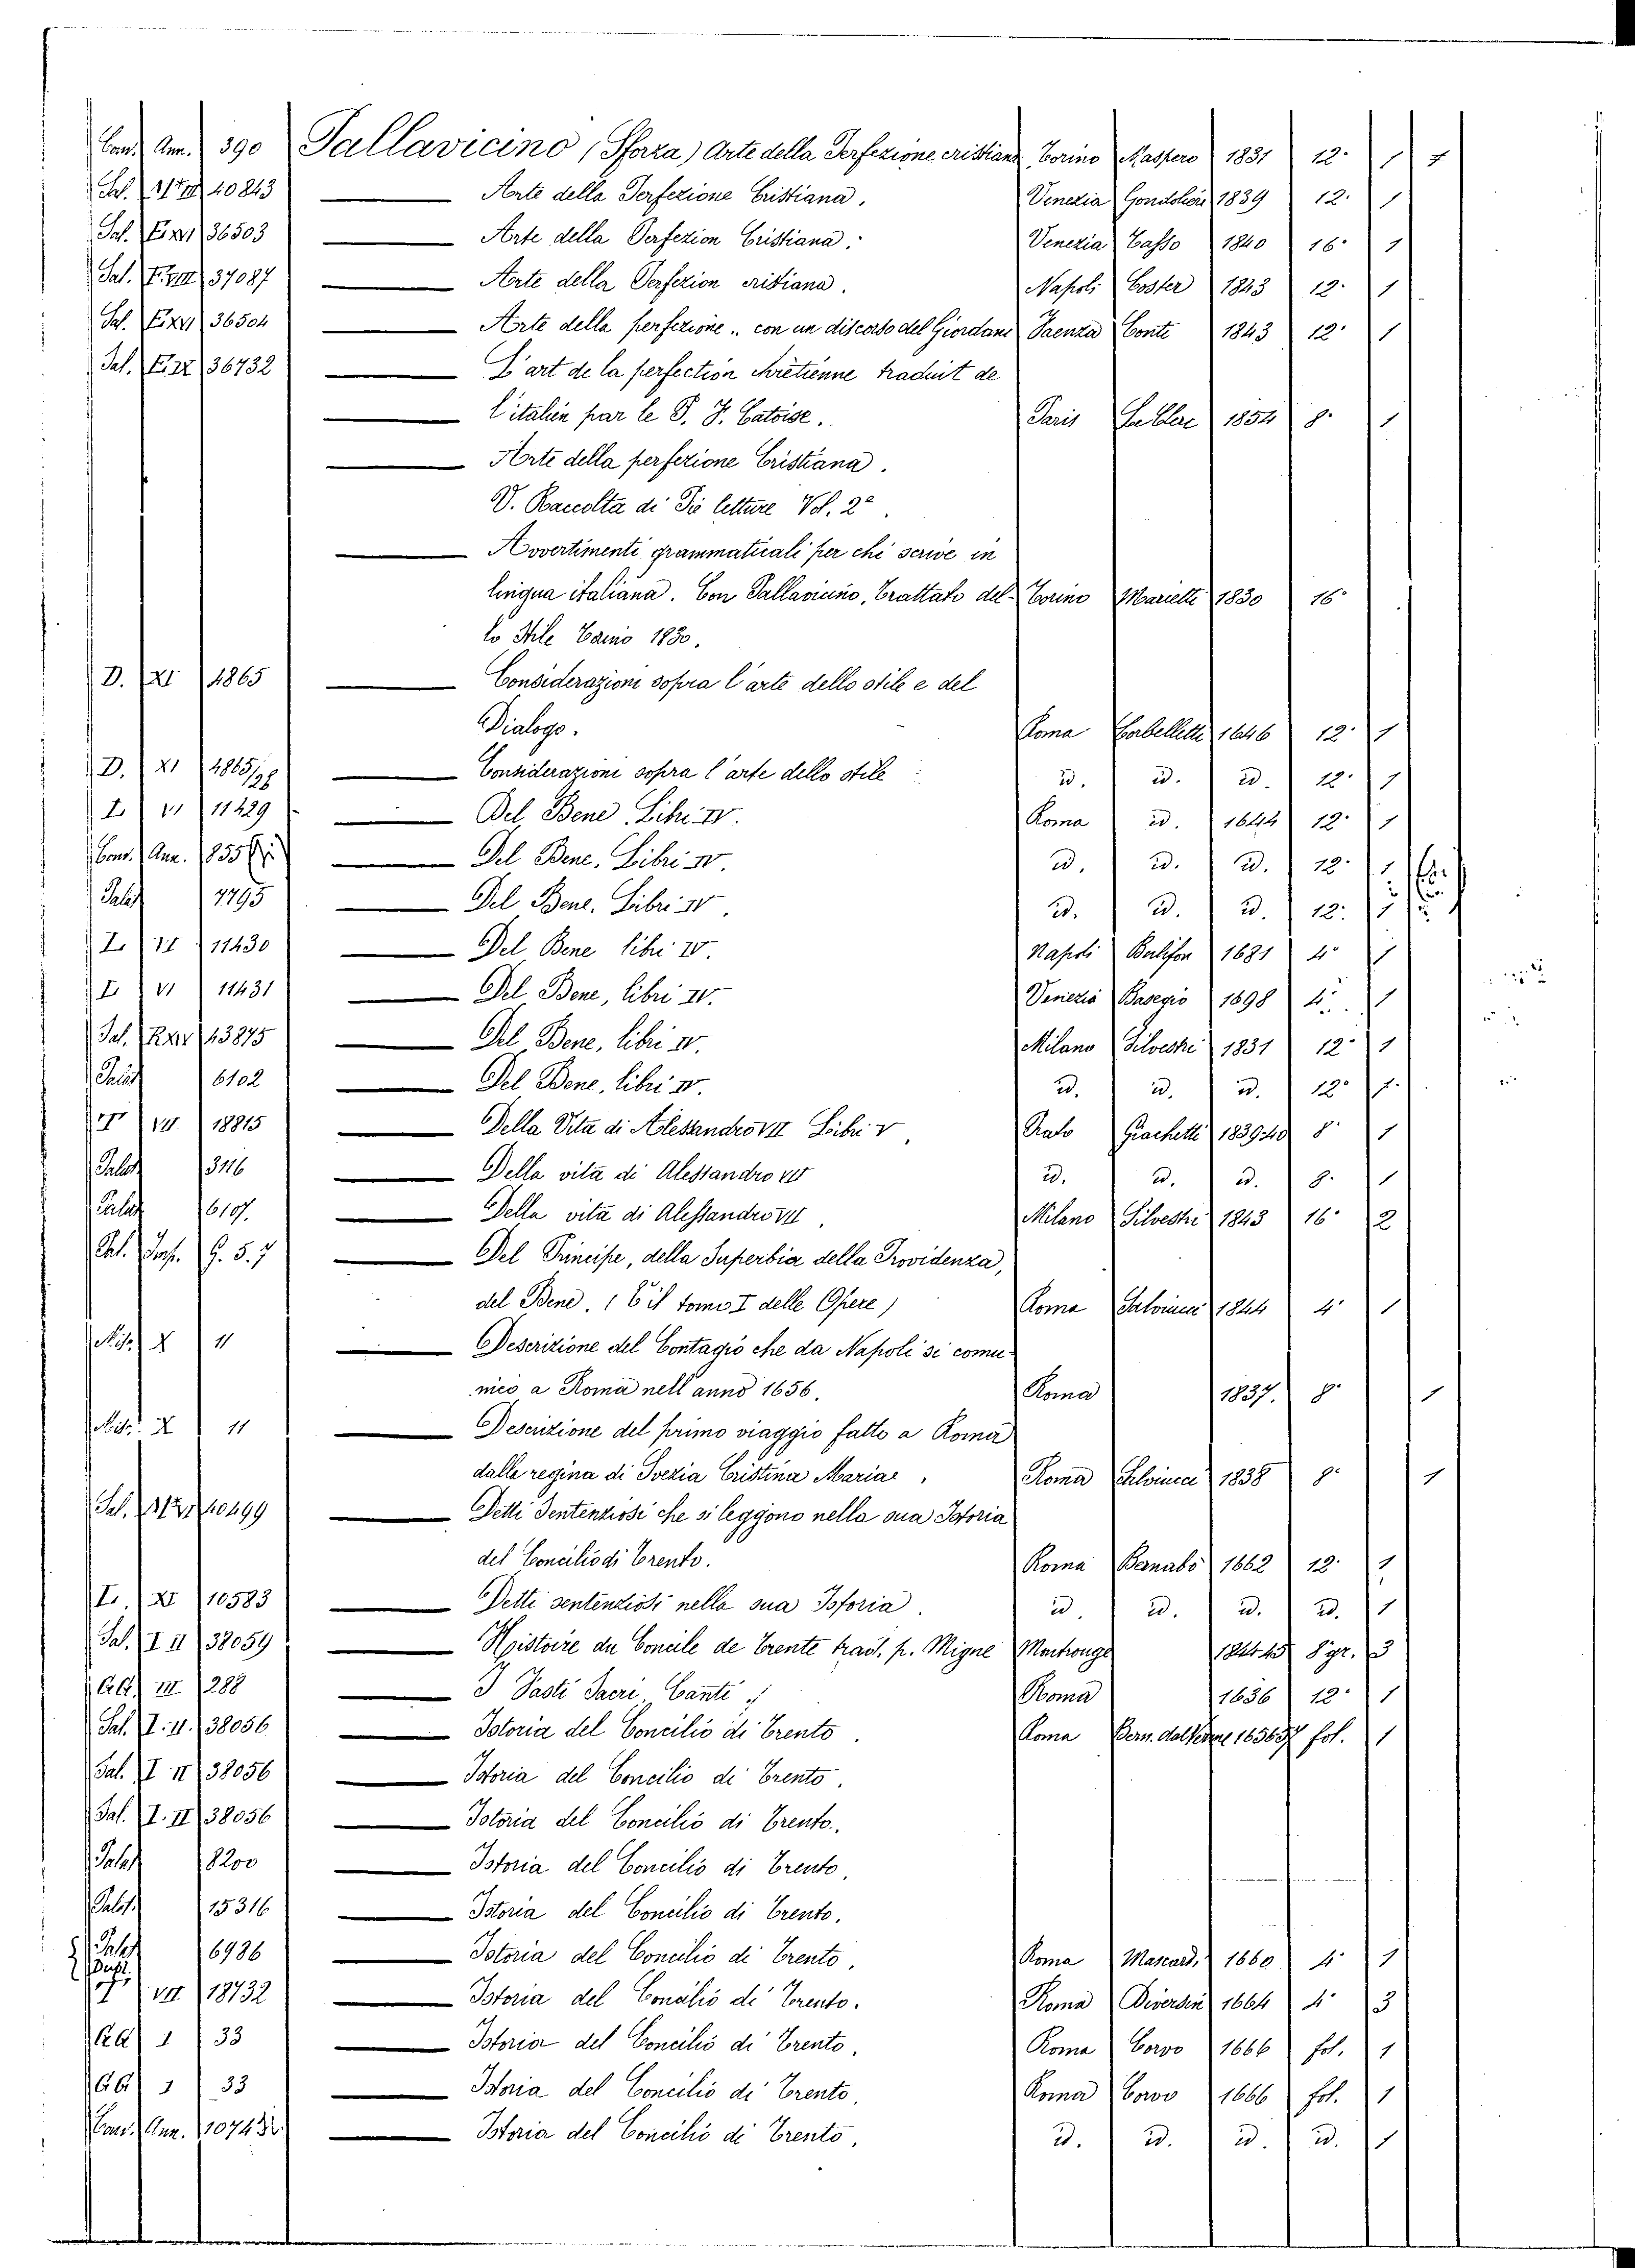 Cons. Ann. 390 Pallavicino (Sforza) Arte della Perfezione cristiana Torino Maspero 1831 12° 1
Sal. 40843 Arte della Perfezione Cristiana. Venezia Gondolieri 1839 12° 1
Sal. 36503 Arte della Perfezion Cristiana. Venezia Tasso 1840 16° 1
Sal. 37087 Arte della Perfezion cristiana. Napoli Coster 1843 12° 1
Sal. 36504 Arte della perfezione .. con un discorso del Giordani Faenza Conti 1843 12° 1
Sal. 36732 L'art de la perfection chrétienne traduit de
l'italien par le P. J. Catoise. Paris 1854 8° 1
Arte della perfezione Cristiana.
V. Raccolta di Pie letture Vol. 2°.
Avvertimenti grammaticali per chi scrive in
lingua italiana. Con Pallavicino, Trattato del- Torino Marietti 1830 16°
lo Stile 1830.
D. XI 4865 Considerazioni sopra l'arte dello stile e del
Dialogo. Roma Corbelletti 1646 12° 1
D. XI 4865 Considerazioni sopra l'arte dello stile id. id. id. 12° 1
I VI 11429 Del Bene Libri IV. Roma id. 1644 12° 1
Cons. Ann. 1855 Del Bene, Libri IV id. id. id. 12° 1
Palat 7795 Del Bene, Libri IV. id. id. id. 12° 1
11430 Del Bene libri IV. Napoli Bulifon 1681 4° 1
I VI 11431 Del Bene, libri IV. Venezia Basegio 1698 4° 1
Sal. 43875 Del Bene, libri IV. Milano Silvestri 1831 12° 1
Palat 6102 Del Bene, libri IV. id. id. id. 12° 1
18815 Della Vita di Alessandro VII Libri V Prato Giachetti 1839 40 8° 1
Palat Della vita di Alessandro VII id. id. id. 8° 1
Palat Della vita di Alessandro VII. Milano Silvestri 1843 16° 2
G. 5. 7 Del Principe, della Superbia della Providenza,
del Bene. (È il tomo I delle Opere) Roma Salviucci 1844 4° 1
Misc. X 11 Descrizione del Contagio che da Napoli si comu-
nicò a Roma nell'anno 1656. Roma 1837. 8° 1
Misc. X 11 Descrizione del primo viaggio fatto a Roma
dalla regina di Svezia Cristina Maria. Roma Salviucci 1838 8° 1
Sal. 40499 Detti Sentenziosi che si leggono nella sua Istoria
del Concilio di Trento. Roma Bernabò 1662 12° 1
I. XI 10583 Detti sentenziosi nella sua Istoria. id. id. id. id. 1
Sal. I II 38059 Histoire du Concile de Trente trad. p. Migne Montrouge 1844 45 8 gr. 3
III 288 I Fasti Sacri, Canti Roma 1636 12° 1
Sal. I. II. 38056 Istoria del Concilio di Trento. Roma Bern. dal Verme 1656 57 fol. 1
Sal. I II 38056 Istoria del Concilio di Trento.
Sal. I. II 38056 Istoria del Concilio di Trento.
Palat 8200 Istoria del Concilio di Trento.
Palat. 15316 Istoria del Concilio di Trento.
Palat 6986 Istoria del Concilio di Trento. Roma Mascard. 1660 4° 1
Dupl.
VII 18732 Istoria del Concilio di Trento. Roma Diversin 1664 4° 3
1 33 Istoria del Concilio di Trento. Roma Corvo 1666 fol. 1
1 33 Istoria del Concilio di Trento. Roma Corvo 1666 fol. 1
Cons. Ann. Istoria del Concilio di Trento. id. id. id. id. 1